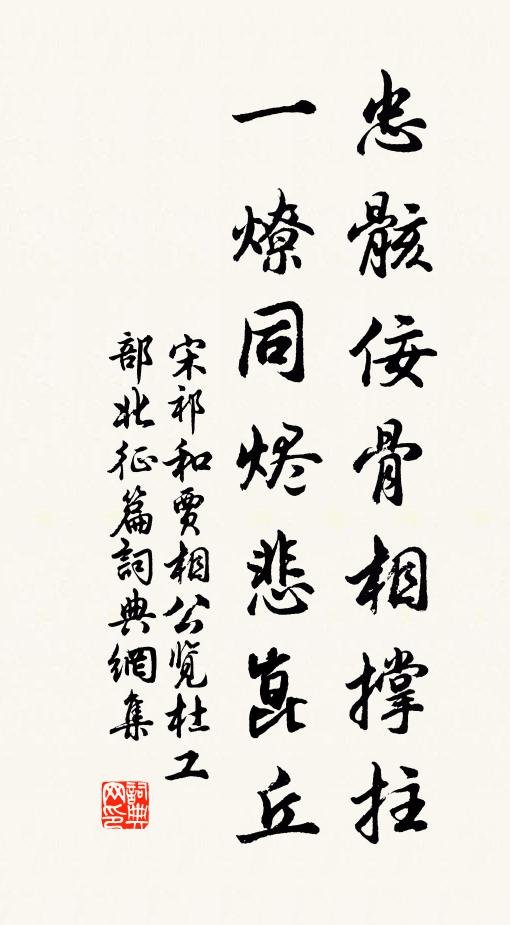 忠骸佞骨相撑拄
一燎同烬悲崑丘
宋祁和賈相公览杜工
部北征篇詞典網集
詞典网印